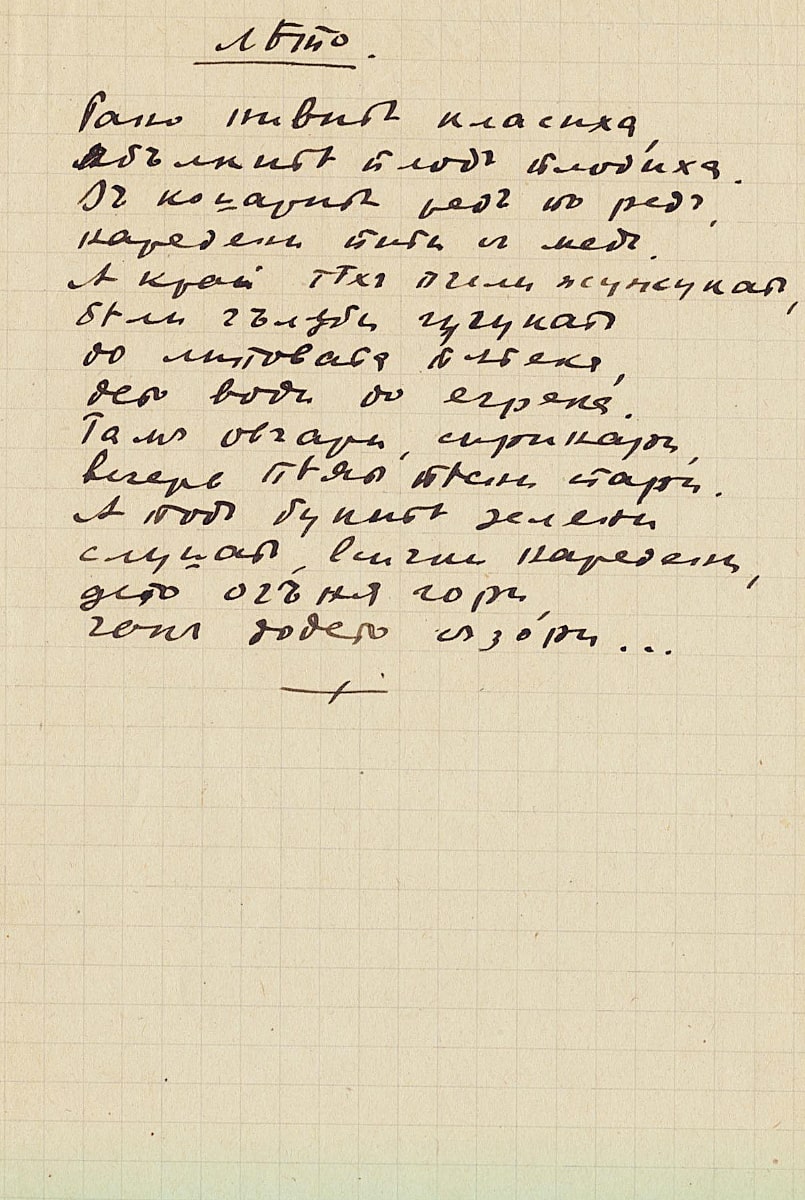 Лѣто.
Рано нивитѣ класиха,
ябълкитѣ плодъ плодиха.
Въ кошаритѣ редъ по редъ,
наредени пити съ медъ.
А край тѣхъ пчели жужукатъ,
бѣли гълѫби гугукатъ
до липовата пѫтека,
дето води до егрека.
Тамъ овчари, сиринари,
вечерь пѣятъ пѣсни стари.
А подъ букитѣ зелени
слушатъ, всички наредени,
дето огъня гори,
чакъ додето зазо́ри...